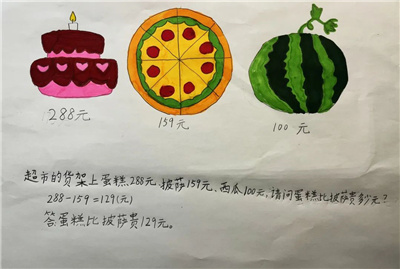 288元
159元
100元
超市的货架上蛋糕288元.披萨159元、西瓜100元.请问蛋糕比披萨贵多少元?
288-159=129(元)
答蛋糕比披萨贵129元。